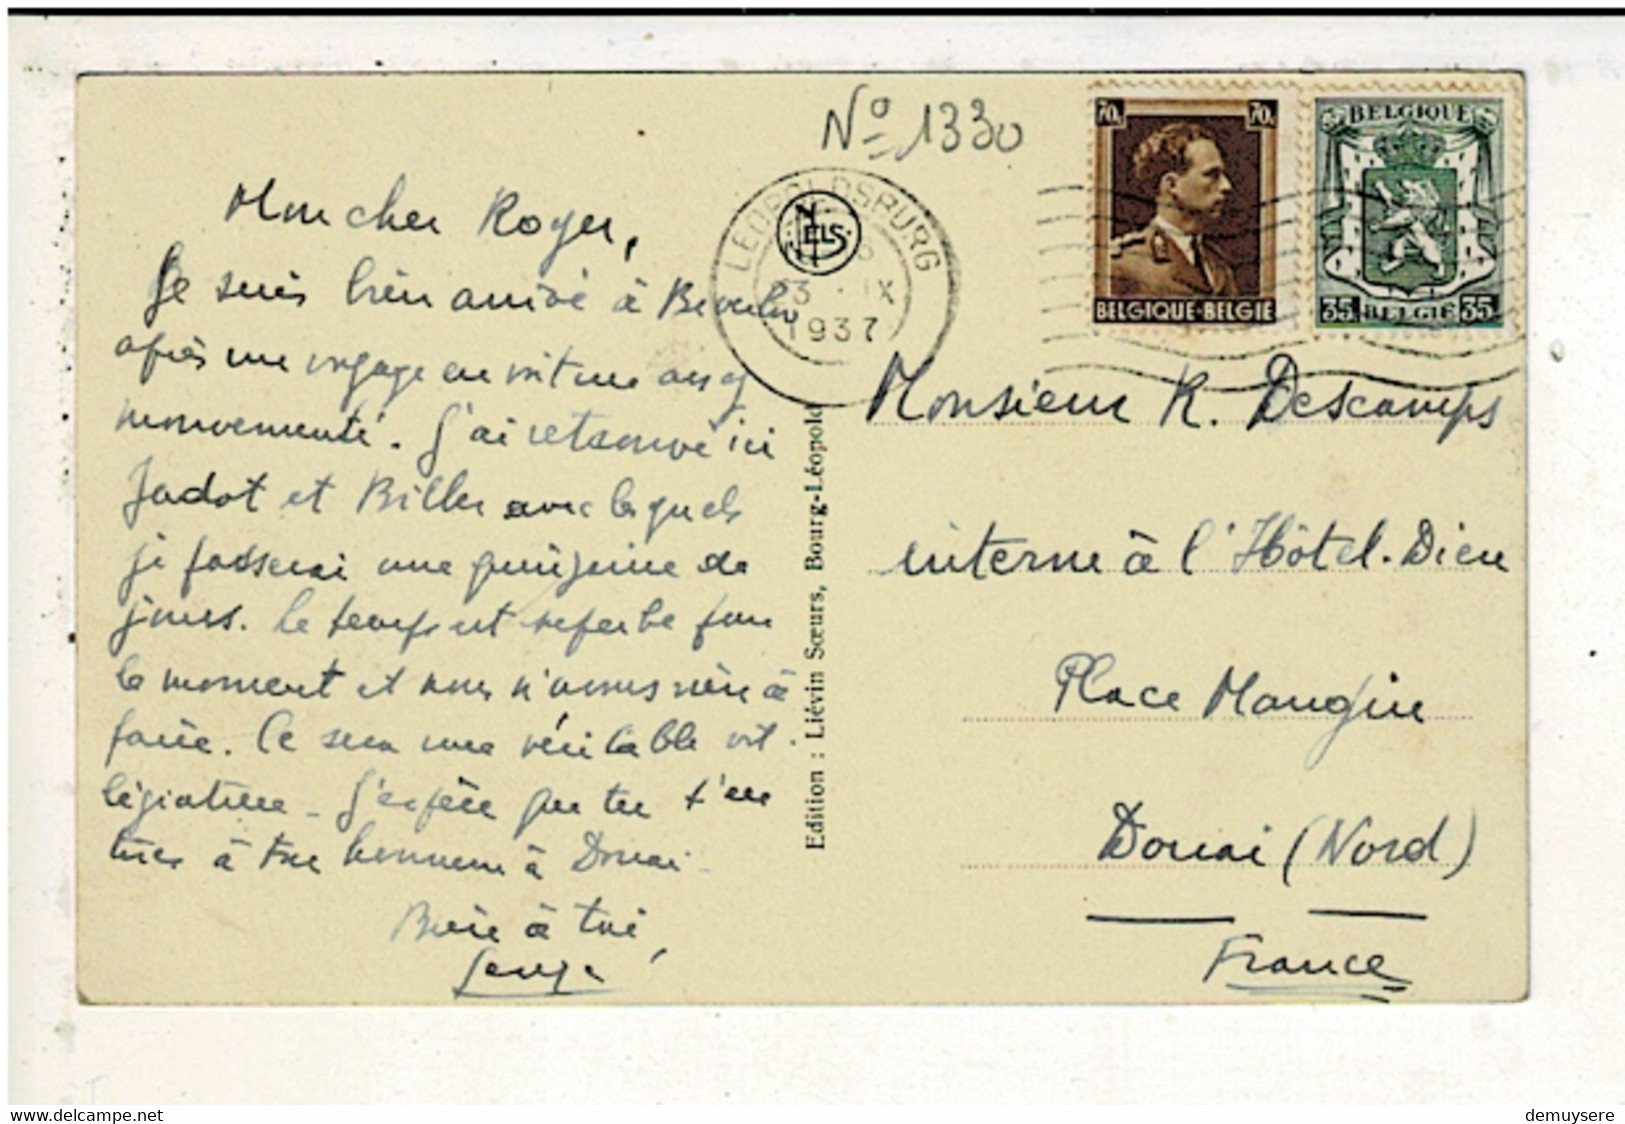 N° 1330
Mon cher Roger,
Je suis bien arrivé à Beverloo
après une voyage en voiture assez
mouvementé. J'ai retrouvé ici
Jadot et Biller avec lesquels
je passerai une quinzaine de
jours. Le temps est superbe pour
le moment et nous n'avons rien à
faire. Ce sera une véritable vil-
légiature - J'espère que tu t'en
tires à ton honneur à Douai -
Bien à toi,
LEOPOLDSBURG
NELS
IX
1937
70. 70.
BELGIQUE-BELGIE
BELGIQUE
35 BELGIE 35
Edition : Liévin Sœurs, Bourg-Léopold
Monsieur R. Descamps
interne à l'Hôtel-Dieu
Place Mangin
Douai (Nord)
France
delcampe.net
demuysere